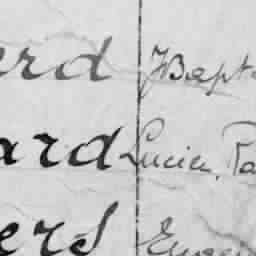 erd JBapt
ard Lucien, Pa
ers Eugen